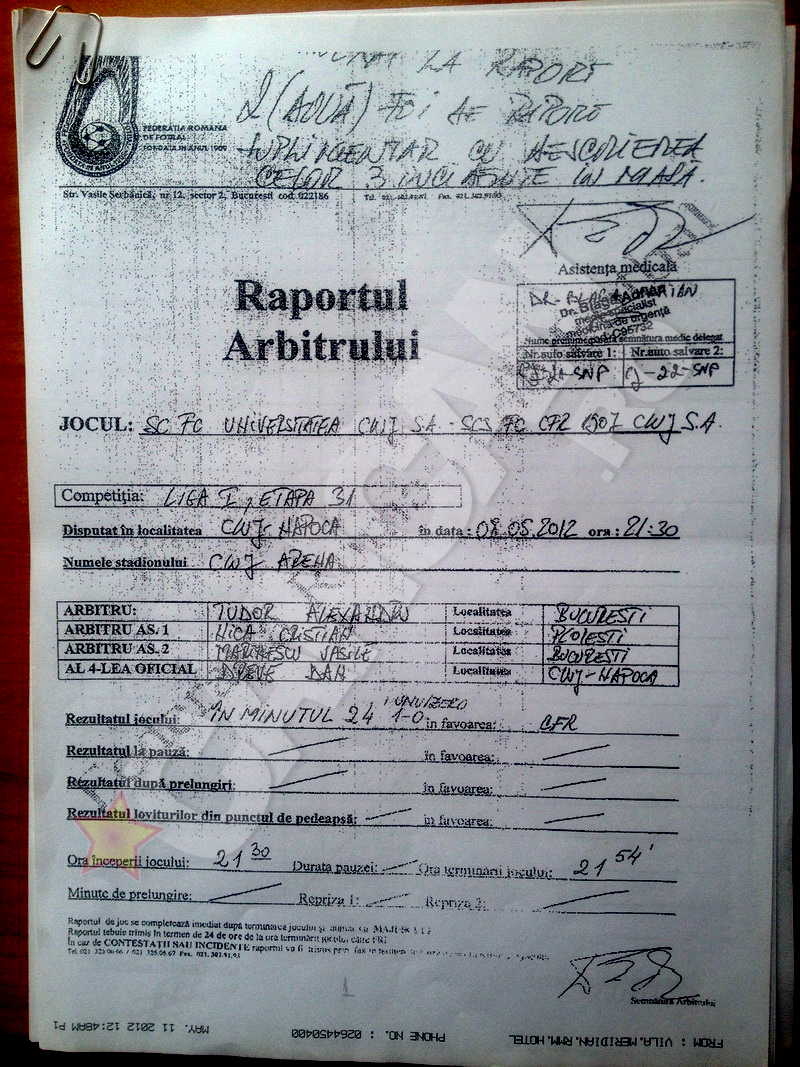 LA RAPORT
2 (DOUĂ) FOI DE RAPORT
SUPLIMENTAR CU DESCRIEREA
CELOR 3 INCIDENTE ÎN MASĂ.
FEDERAȚIA ROMÂNĂ
DE FOTBAL
FONDATĂ ÎN ANUL 1909
Str. Vasile Șerbănică, nr 12, sector 2, București cod 022186
Asistența medicală
Dr. Blaga Adrian
medic specialist
medicină de urgență
C95732
Nume prenume parafă semnătură medic delegat
Nr.auto salvare 1: Nr.auto salvare 2:
CJ-22-SNP
Raportul
Arbitrului
JOCUL: SC FC UNIVERSITATEA CLUJ SA - SCS FC CFR 1907 CLUJ S.A.
Competiția: LIGA I, ETAPA 31
Disputat în localitatea CLUJ-NAPOCA în data: 08.05.2012 ora: 21:30
Numele stadionului CLUJ ARENA
ARBITRU: TUDOR ALEXANDRU Localitatea BUCUREȘTI
ARBITRU AS. 1 NICA CRISTIAN Localitatea PLOIEȘTI
ARBITRU AS. 2 MARINESCU VASILE Localitatea BUCUREȘTI
AL 4-LEA OFICIAL DAN Localitatea CLUJ-NAPOCA
Rezultatul jocului: ÎN MINUTUL 24' UNU/ZERO 1-0 în favoarea: CFR
Rezultatul la pauză: în favoarea:
Rezultatul după prelungiri: în favoarea:
Rezultatul loviturilor din punctul de pedeapsă: în favoarea:
Ora începerii jocului: 21 30 Durata pauzei: Ora terminării jocului: 21 54'
Minute de prelungire: Repriza 1: Repriza 2:
Raportul de joc se completează imediat după terminarea jocului și numai cu MAJUSCULE
Raportul tebuie trimis în termen de 24 de ore de la ora terminării jocului către FRF
În caz de CONTESTAȚII SAU INCIDENTE raportul va fi trimis prin fax
Tel. 021 325.06.66 / 021 325.06.67 Fax. 021.302.91.93
Semnătura Arbitrului
1
FROM : VILA.MERIDIAN.RMM.HOTEL PHONE NO. : 0264450400 MAY. 11 2012 12:48AM P1